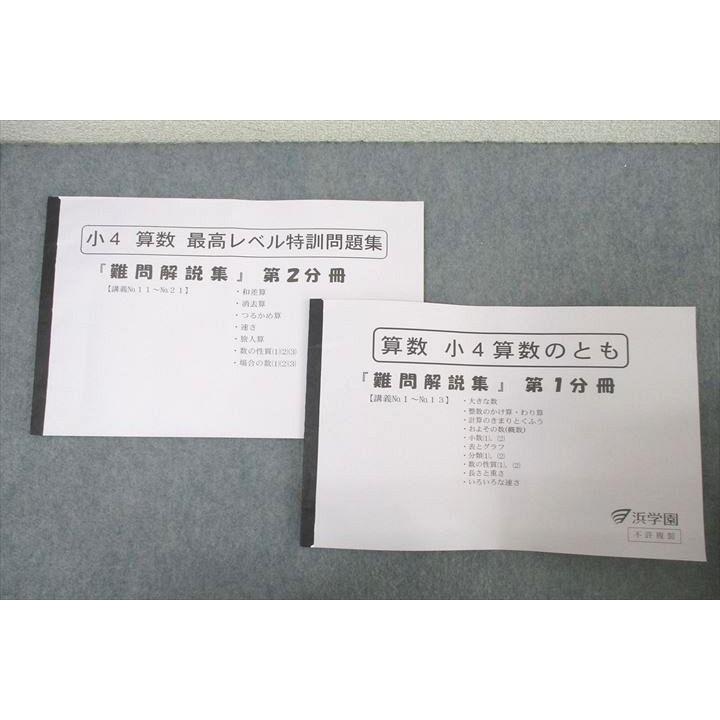 小4 算数 最高レベル特訓問題集
『難問解説集』 第2分冊
【講義No.11～No.21】
・和差算
・消去算
・つるかめ算
・速さ
・旅人算
・数の性質(1)(2)(3)
・場合の数(1)(2)(3)
算数 小4算数のとも
『難問解説集』 第1分冊
【講義No.1～No.13】
・大きな数
・整数のかけ算・わり算
・計算のきまりとくふう
・およその数(概数)
・小数(1)、(2)
・表とグラフ
・分類(1)、(2)
・数の性質(1)、(2)
・長さと重さ
・いろいろな速さ
浜学園
不許複製